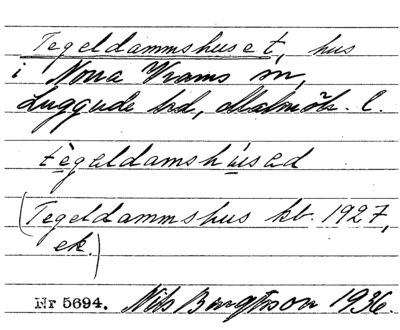 Tegeldammshuset, hus
i Norra Vrams sn,
Luggude hd, Malmöh. l.
tègeldamshúsəd
(Tegeldammshus kb. 1927,
ek.)
Nr 5694. Nils Bengtsson 1936.